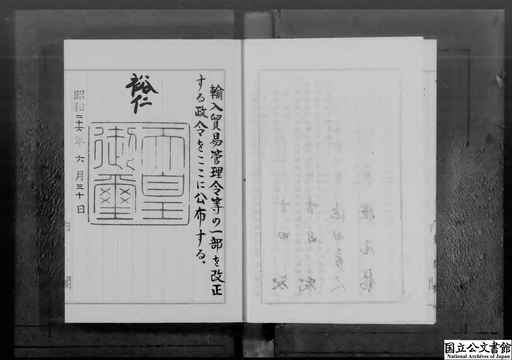 輸入貿易管理令等の一部を改正
する政令をここに公布する。
裕仁
天皇
御璽
昭和二十六年六月三十日
国立公文書館
National Archives of Japan